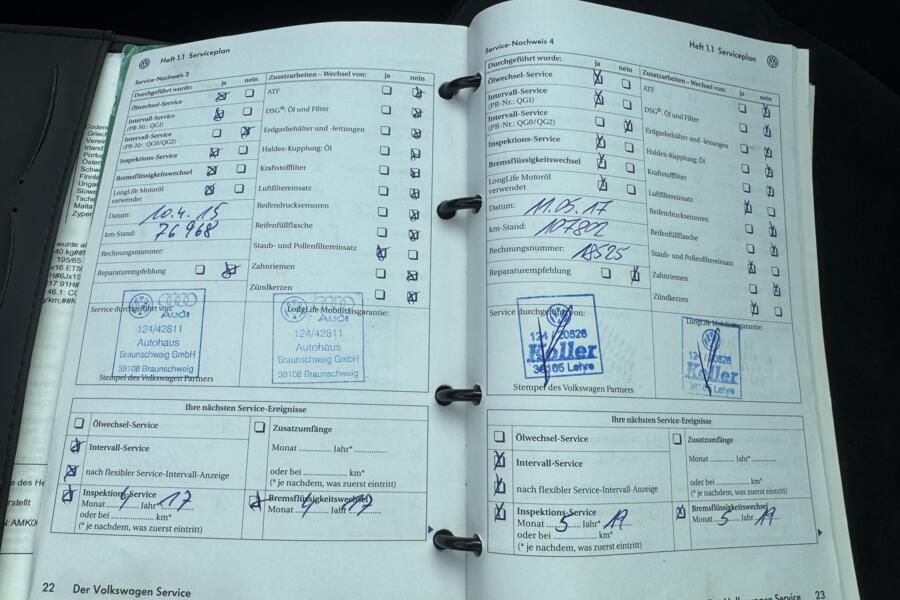 Heft 1.1 Serviceplan
Service-Nachweis 3
Durchgeführt wurde: ja nein
Ölwechsel-Service
Intervall-Service
(PR-Nr.: QG1)
Intervall-Service
(PR-Nr.: QG0/QG2)
Inspektions-Service
Bremsflüssigkeitswechsel
LongLife Motoröl
verwendet
Datum: 10.4.15
km-Stand: 76 968
Rechnungsnummer:
Reparaturempfehlung
Zusatzarbeiten – Wechsel von: ja nein
ATF
DSG®: Öl und Filter
Erdgasbehälter und -leitungen
Haldex-Kupplung: Öl
Kraftstofffilter
Luftfiltereinsatz
Reifendrucksensoren
Reifenfüllflasche
Staub- und Pollenfiltereinsatz
Zahnriemen
Zündkerzen
Service durchgeführt von:
LongLife Mobilitätsgarantie:
Audi
124/42811
Autohaus
Braunschweig GmbH
38108 Braunschweig
Audi
124/42811
Autohaus
Braunschweig GmbH
38108 Braunschweig
Stempel des Volkswagen Partners
Ihre nächsten Service-Ereignisse
Ölwechsel-Service
Intervall-Service
nach flexibler Service-Intervall-Anzeige
Inspektions-Service
Monat 4 Jahr* 17
oder bei ............ km*
(* je nachdem, was zuerst eintritt)
Zusatzumfänge
Monat ............ Jahr* ............
oder bei ............ km*
(* je nachdem, was zuerst eintritt)
Bremsflüssigkeitswechsel
Monat 4 Jahr 17
22 Der Volkswagen Service
Heft 1.1 Serviceplan
Service-Nachweis 4
Durchgeführt wurde: ja nein
Ölwechsel-Service
Intervall-Service
(PR-Nr.: QG1)
Intervall-Service
(PR-Nr.: QG0/QG2)
Inspektions-Service
Bremsflüssigkeitswechsel
LongLife Motoröl
verwendet
Datum: 11.05.17
km-Stand: 107802
Rechnungsnummer: 18525
Reparaturempfehlung
Zusatzarbeiten – Wechsel von: ja nein
ATF
DSG®: Öl und Filter
Erdgasbehälter und -leitungen
Haldex-Kupplung: Öl
Kraftstofffilter
Luftfiltereinsatz
Reifendrucksensoren
Reifenfüllflasche
Staub- und Pollenfiltereinsatz
Zahnriemen
Zündkerzen
Service durchgeführt von:
LongLife Mobilitätsgarantie:
124 / 20526
Koller
38165 Lehre
124 / 20526
Koller
38165 Lehre
Stempel des Volkswagen Partners
Ihre nächsten Service-Ereignisse
Ölwechsel-Service
Intervall-Service
nach flexibler Service-Intervall-Anzeige
Inspektions-Service
Monat 5 Jahr* 19
oder bei ............ km*
(* je nachdem, was zuerst eintritt)
Zusatzumfänge
Monat ............ Jahr* ............
oder bei ............ km*
(* je nachdem, was zuerst eintritt)
Bremsflüssigkeitswechsel
Monat 5 Jahr 19
Der Volkswagen Service 23